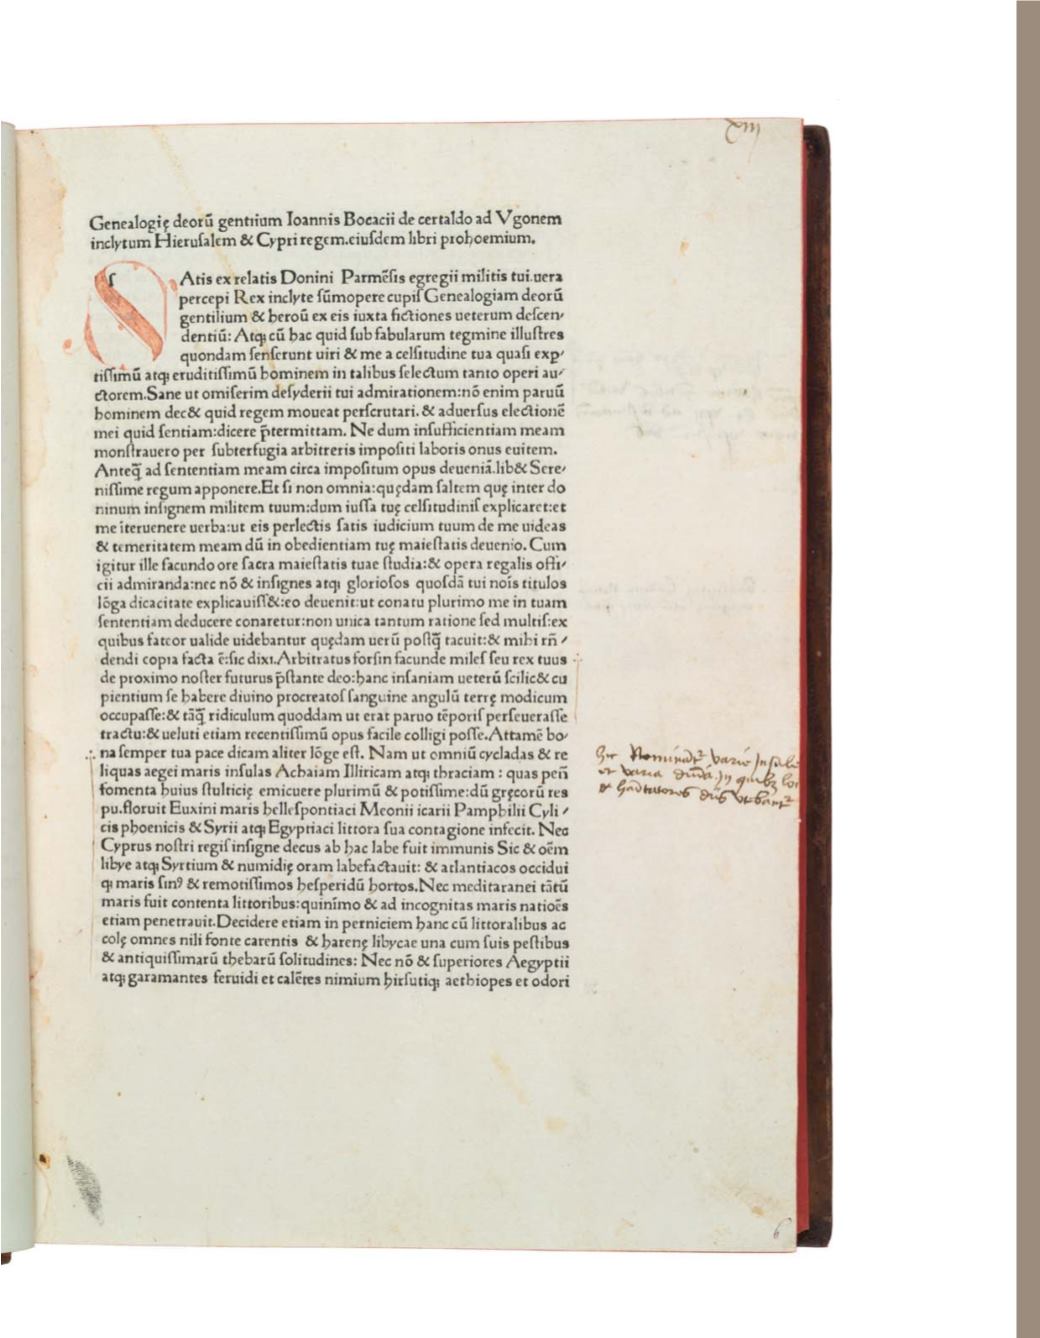 xiii
Genealogię deorū gentiium Ioannis Bocacii de certaldo ad Vgonem
inclytum Hierusalem & Cypri regem.eiusdem libri prohoemium.
SAtis ex relatis Donini Parmēsis egregii militis tui.uera
percepi Rex inclyte sūmopere cupis Genealogiam deorū
gentilium & heroū ex eis iuxta fictiones ueterum descen⸗
dentiū: Atqꝫ cū hac quid sub fabularum tegmine illustres
quondam senserunt uiri & me a celsitudine tua quasi exꝑ⸗
tissimū atqꝫ eruditissimū hominem in talibus selectum tanto operi au⸗
ctorem.Sane ut omiserim desyderii tui admirationem:nō enim paruū
hominem dec& quid regem moueat perscrutari. & aduersus electionē
mei quid sentiam:dicere p̄termittam. Ne dum insufficientiam meam
monstrauero per subterfugia arbitreris impositi laboris onus euitem.
Anteq̄ ad sententiam meam circa impositum opus deueniā.lib& Sere⸗
nissime regum apponere.Et si non omnia:quędam saltem quę inter do
ninum insignem militem tuum:dum iussa tuę celsitudinis explicaret:et
me īteruenere uerba:ut eis perlectis satis iudicium tuum de me uideas
& temeritatem meam dū in obedientiam tuę maiestatis deuenio. Cum
igitur ille facundo ore sacra maiestatis tuae studia:& opera regalis offi⸗
cii admiranda:nec nō & insignes atqꝫ gloriosos quosdā tui noīs titulos
lōga dicacitate explicauiss&:eo deuenit:ut conatu plurimo me in tuam
sententiam deducere conaretur:non unica tantum ratione sed multis:ex
quibus fateor ualide uidebantur quędam uerū postq̄ tacuit:& mihi rn̄ ⸗
dendi copia facta ē:sic dixi.Arbitratus forsin facunde miles seu rex tuus
de proximo noster futurus p̄stante deo:hanc insaniam ueterū scilic& cu
pientium se habere diuino procreatos sanguine angulū terrę modicum
occupasse:& tāq̄ ridiculum quoddam ut erat paruo tēporis perseuerasse
tractu:& ueluti etiam recentissimū opus facile colligi posse.Attamē bo⸗
na semper tua pace dicam aliter lōge est. Nam ut omniū cycladas & re
liquas aegei maris insulas Achaiam Illiricam atqꝫ thraciam : quas penī
fomenta huius stulticię emicuere plurimū & potissime:dū gręcorū res
pu.floruit Euxini maris hellespontiaci Meonii icarii Pamphilii Cyli ⸗
cis phoenicis & Syrii atqꝫ Egyptiaci littora sua contagione infecit. Nec
Cyprus nostri regis insigne decus ab hac labe fuit immunis Sic & oēm
libye atqꝫ Syrtium & numidię oram labefactauit: & atlantiacos occidui
qꝫ maris sinꝰ & remotissimos hesperidū hortos.Nec meditaranei tātū
maris fuit contenta littoribus:quinīmo & ad incognitas maris natioēs
etiam penetrauit.Decidere etiam in perniciem hanc cū littoralibus ac
colę omnes nili fonte carentis & harenę libycae una cum suis pestibus
& antiquissimarū thebarū solitudines: Nec nō & superiores Aegyptii
atqꝫ garamantes feruidi et calētes nimium hirsutiqꝫ aethiopes et odori
6